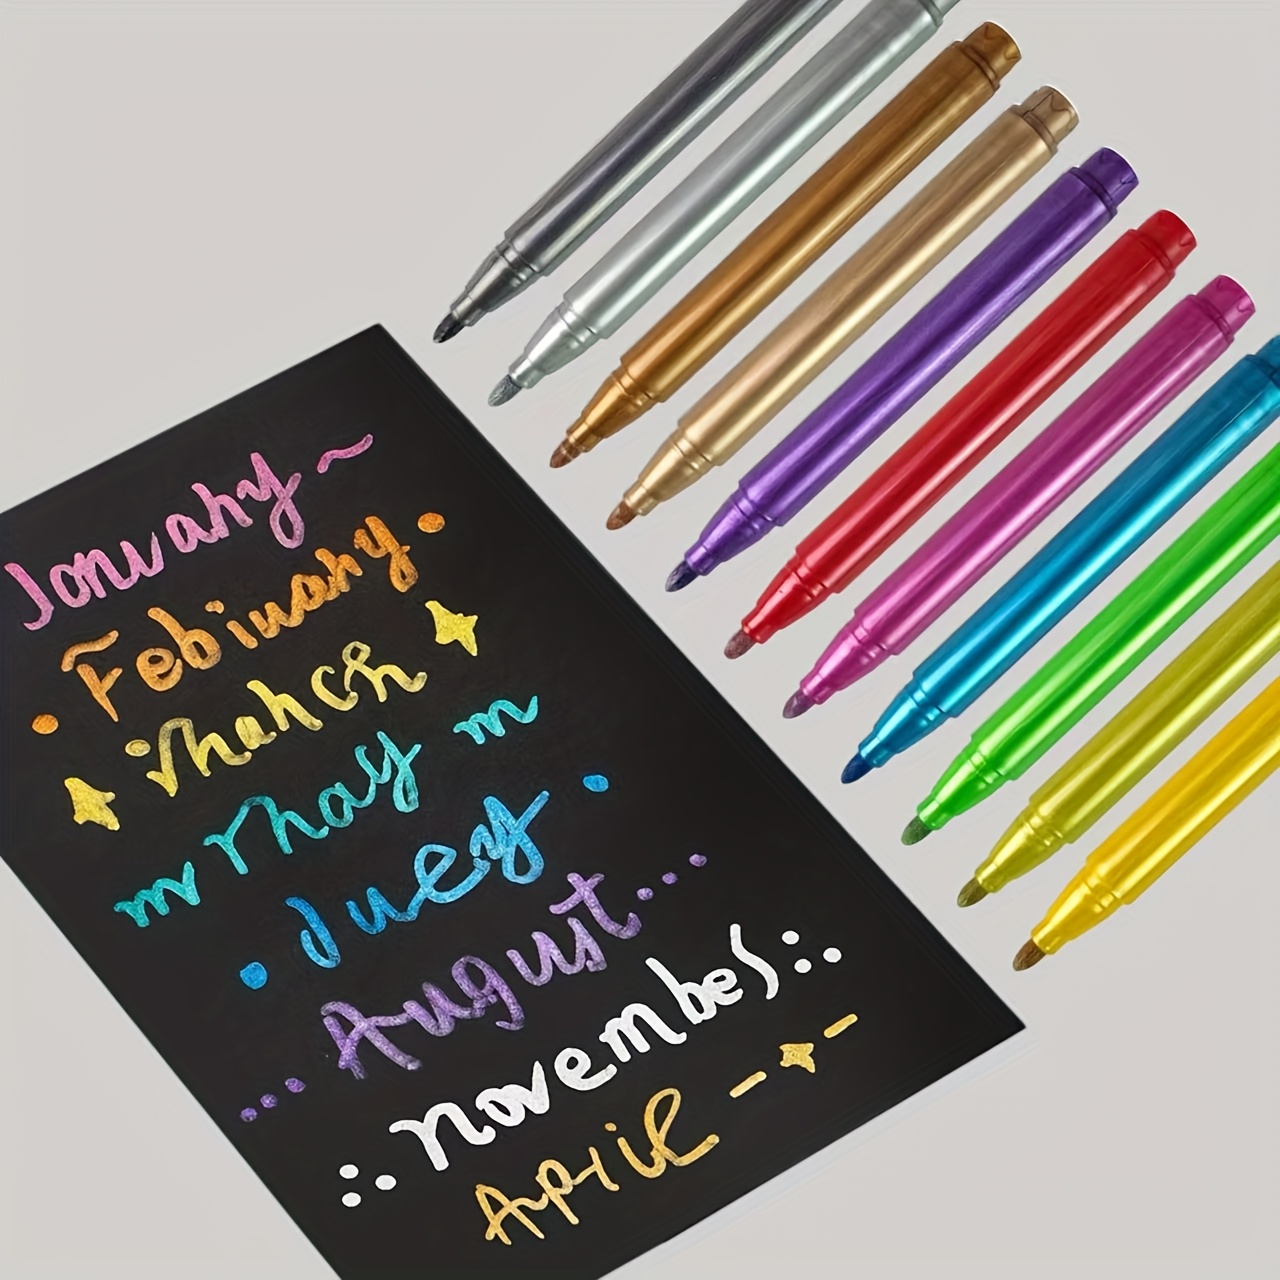 January ~
• February •
March
m May m
• July •
... August ...
November
April